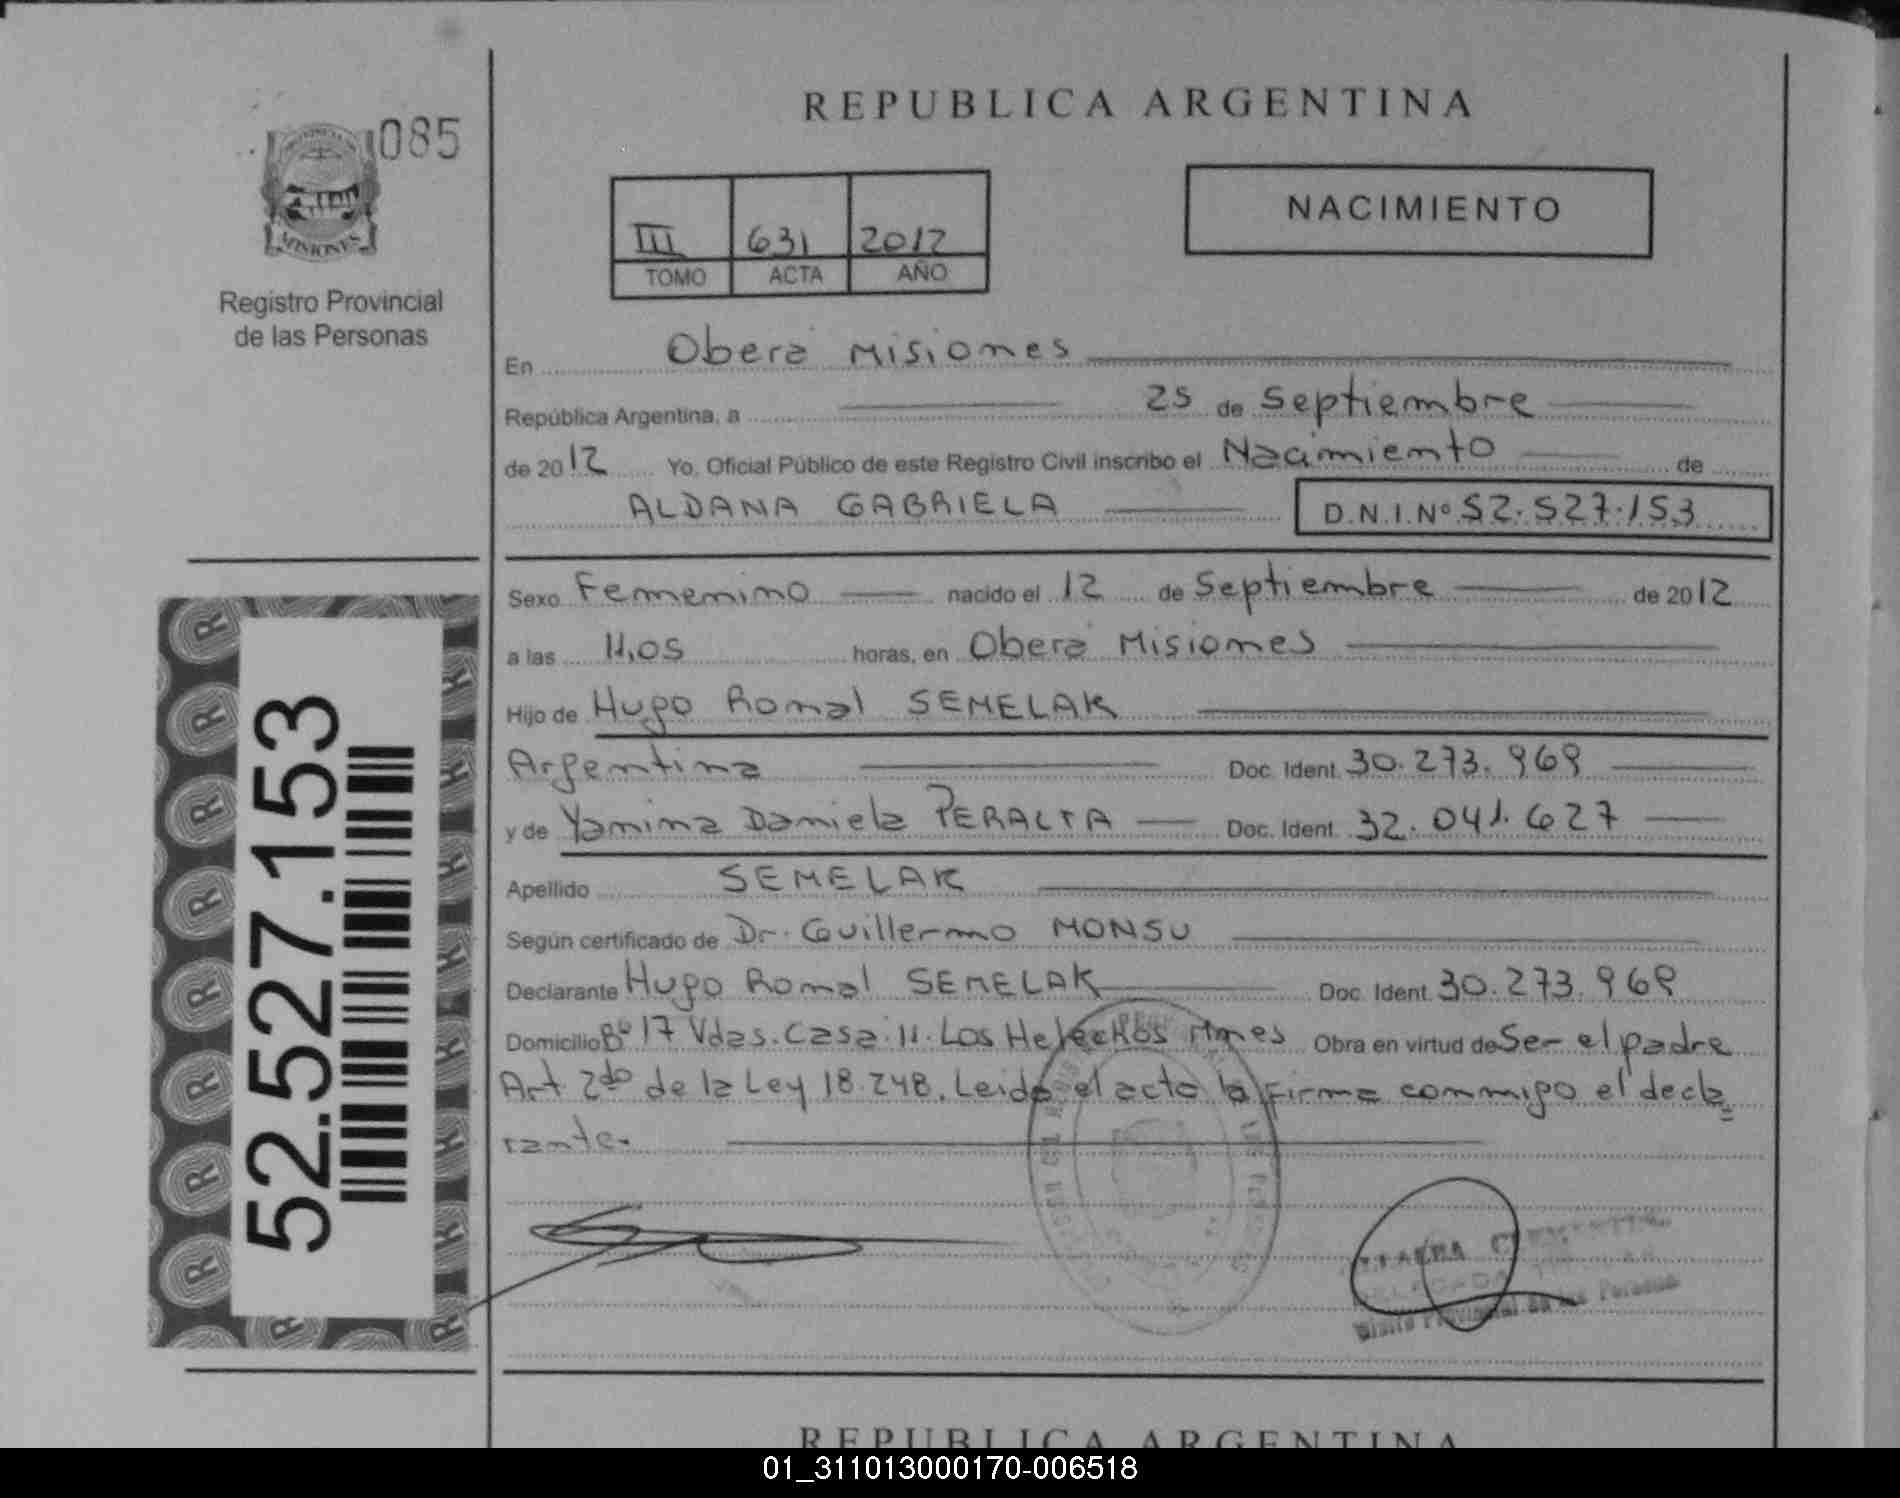 085
MISIONES
Registro Provincial
de las Personas
52.527.153
REPUBLICA ARGENTINA
III 631 2012
TOMO ACTA AÑO
NACIMIENTO
En Oberá Misiones
República Argentina, a 25 de Septiembre
de 2012 Yo, Oficial Público de este Registro Civil inscribo el Nacimiento de
ALDANA GABRIELA D.N.I.Nº 52.527.153
Sexo Femenino nacido el 12 de Septiembre de 2012
a las 11,05 horas, en Oberá Misiones
Hijo de Hugo Ronal SEMELAK
Argentina Doc. Ident. 30.273.969
y de Yamina Daniela PERALTA Doc. Ident. 32.041.627
Apellido SEMELAK
Según certificado de Dr. Guillermo MONSU
Declarante Hugo Ronal SEMELAK Doc. Ident. 30.273.969
Domicilio Bº 17 Vdas. Casa 11. Los Helechos Mnes Obra en virtud de Ser el padre
Art 2do de la Ley 18.248. Leida el acta la firma conmigo el decla
rante.
Provincial de las Personas
REPUBLICA ARGENTINA
01_311013000170-006518